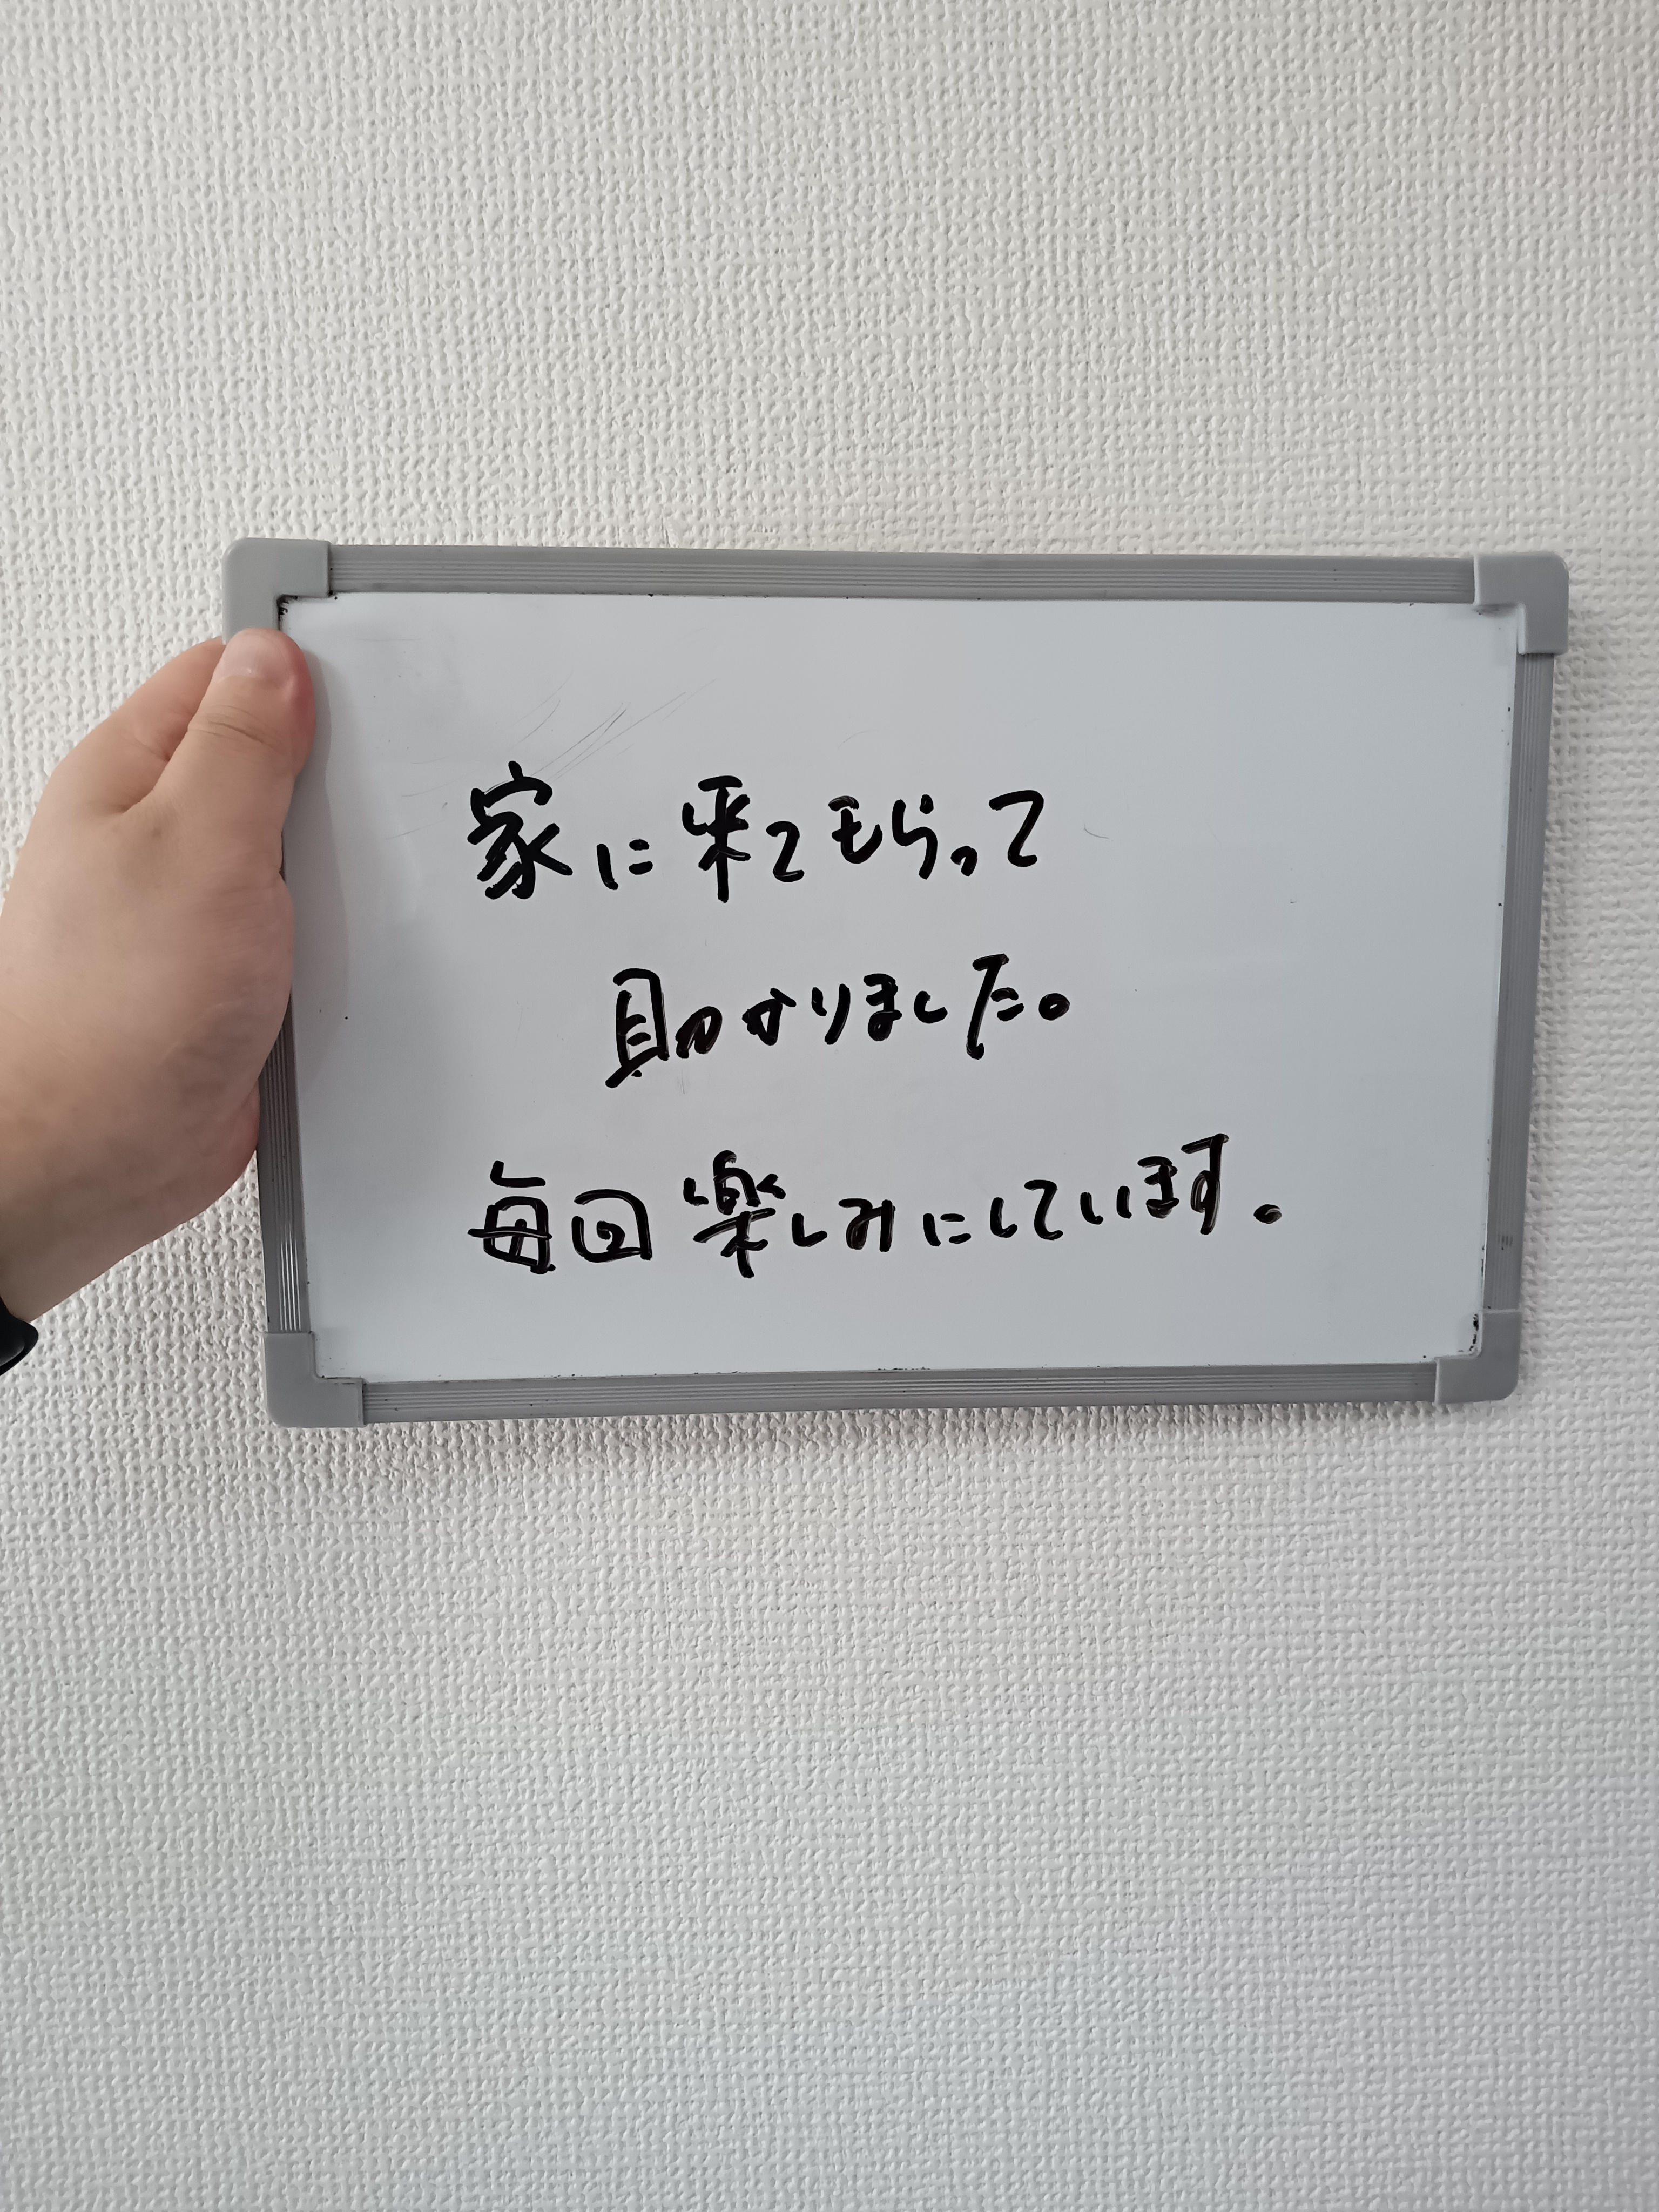 家に来てもらって
助かりました。
毎回楽しみにしています。